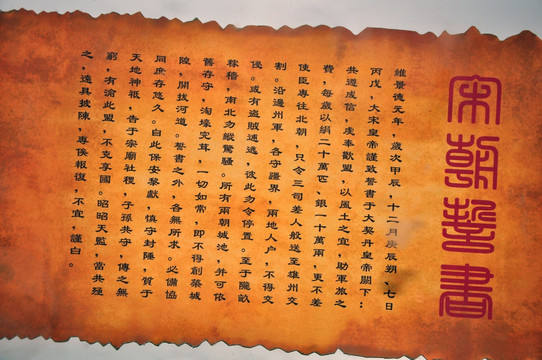 宋朝誓書
維景德元年，歲次甲辰，十二月庚辰朔、七日
丙戌，大宋皇帝謹致誓書于大契丹皇帝闕下：
共遵成信，虔奉歡盟，以風土之宜，助軍旅之
費，每歲以絹二十萬匹、銀一十萬兩，更不差
使臣專往北朝，只令三司差人般送至雄州交
割。沿邊州軍，各守疆界，兩地人户，不得交
侵。或有盜賊逋逃，彼此勿令停匿。至于隴畝
稼穡，南北勿縱驚騷。所有兩朝城池，並可依
舊存守，淘壕完葺，一切如常，即不得創築城
隍，開拔河道。誓書之外，各無所求。必務協
同，庶存悠久。自此保安黎獻，慎守封陲，質于
天地神祇，告于宗廟社稷，子孫共守，傳之無
窮，有渝此盟，不克享國。昭昭天監，當共殛
之，遠具披陳，專俟報復，不宣，謹白。